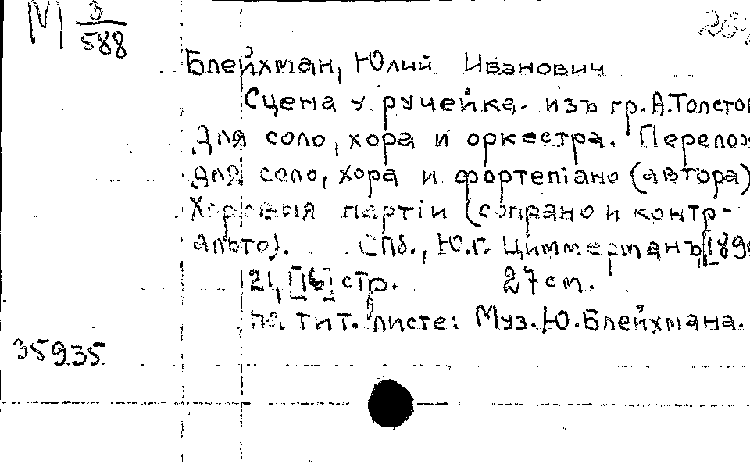 М 3/588
Блейхман, Юлий Иванович
Сцена у ручейка. изъ гр. А. Толсто
для соло, хора и оркестра. Перелож
для соло, хора и фортепiано (автора)
Хоровыя партiи (сопрано и контр-
альто). Спб., Ю.Г. Циммерманъ, [189
21, [16] стр. 27 см.
на тит. листе: Муз. Ю. Блейхмана.
35935